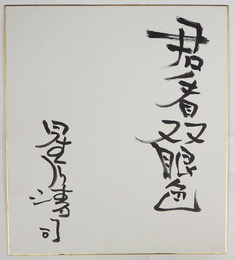 君看双眼色
星川清司